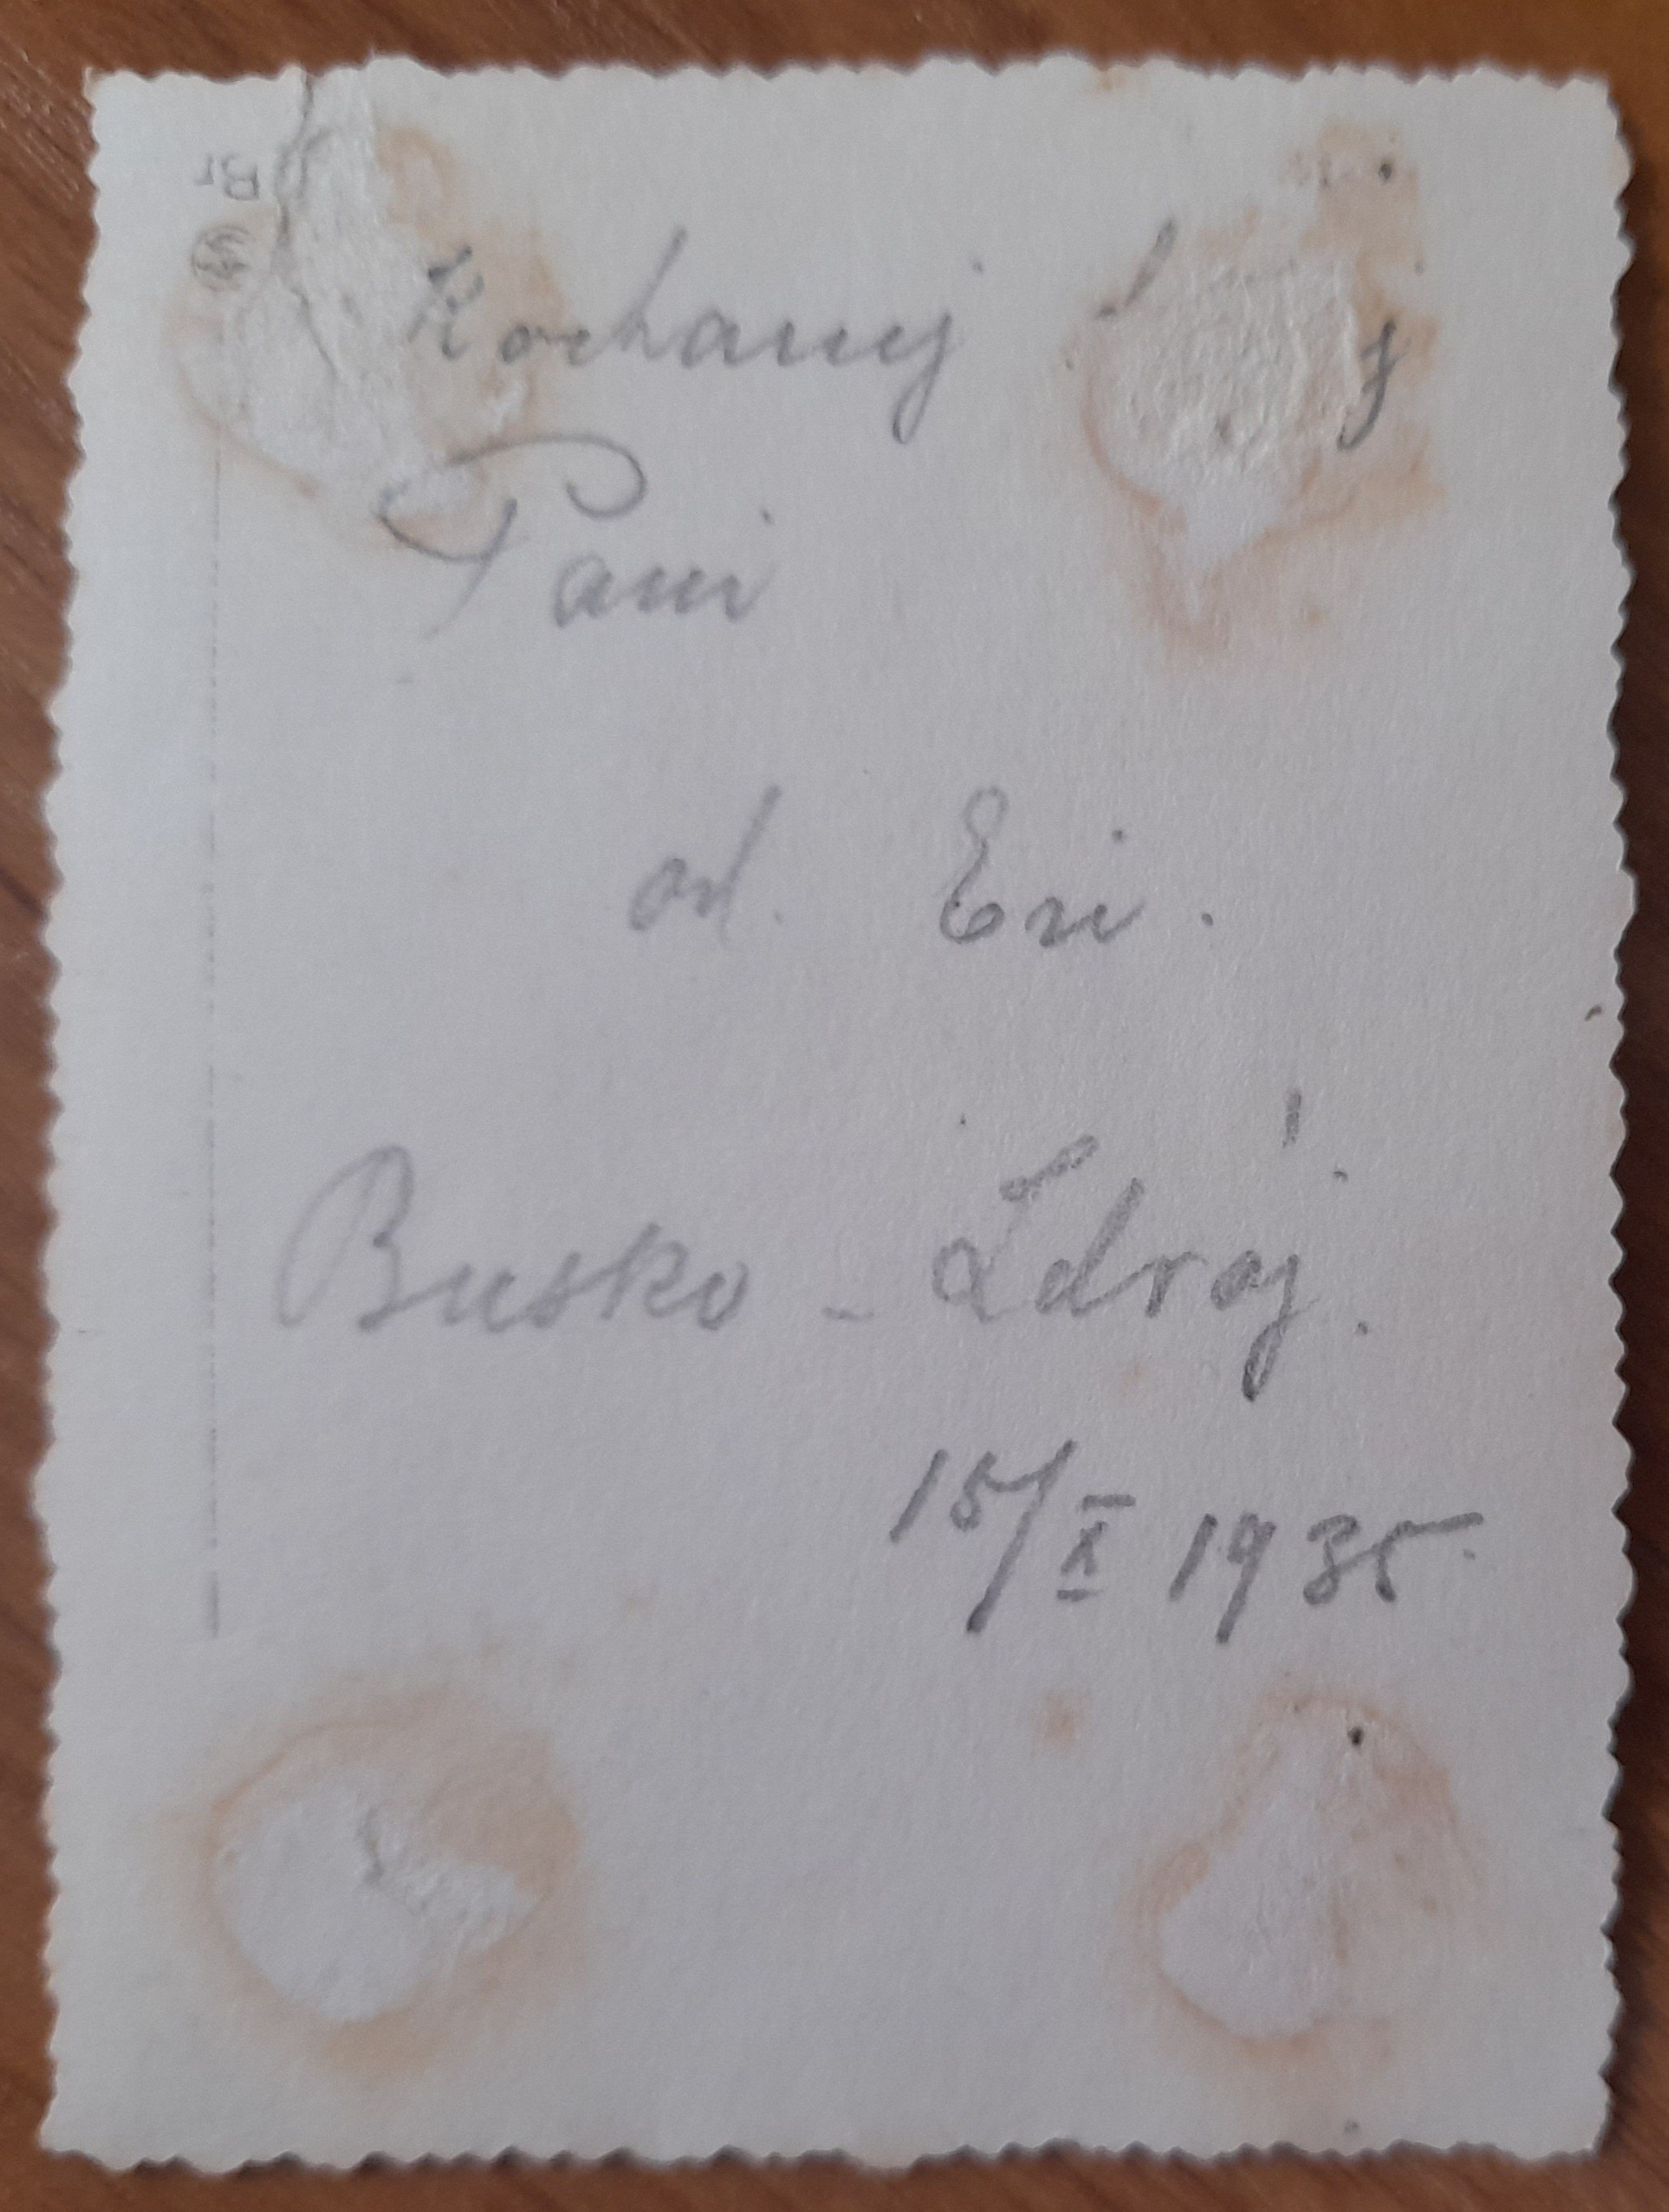 Kochanej
Pani
od. Eri.
Busko - Zdrój.
15/X 1935.